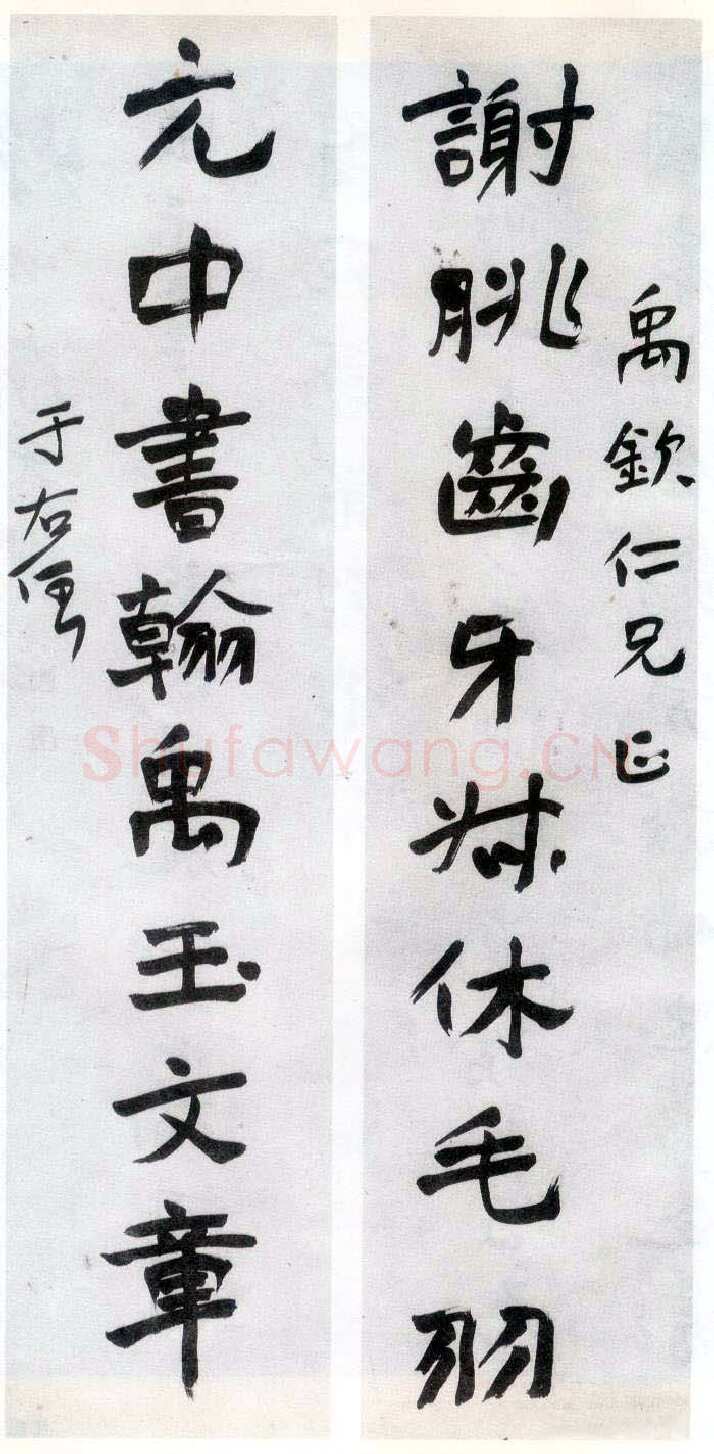 禹欽仁兄正
謝朓齒牙休毛羽
元中書翰禹玉文章
于右任
Shufawang.CN